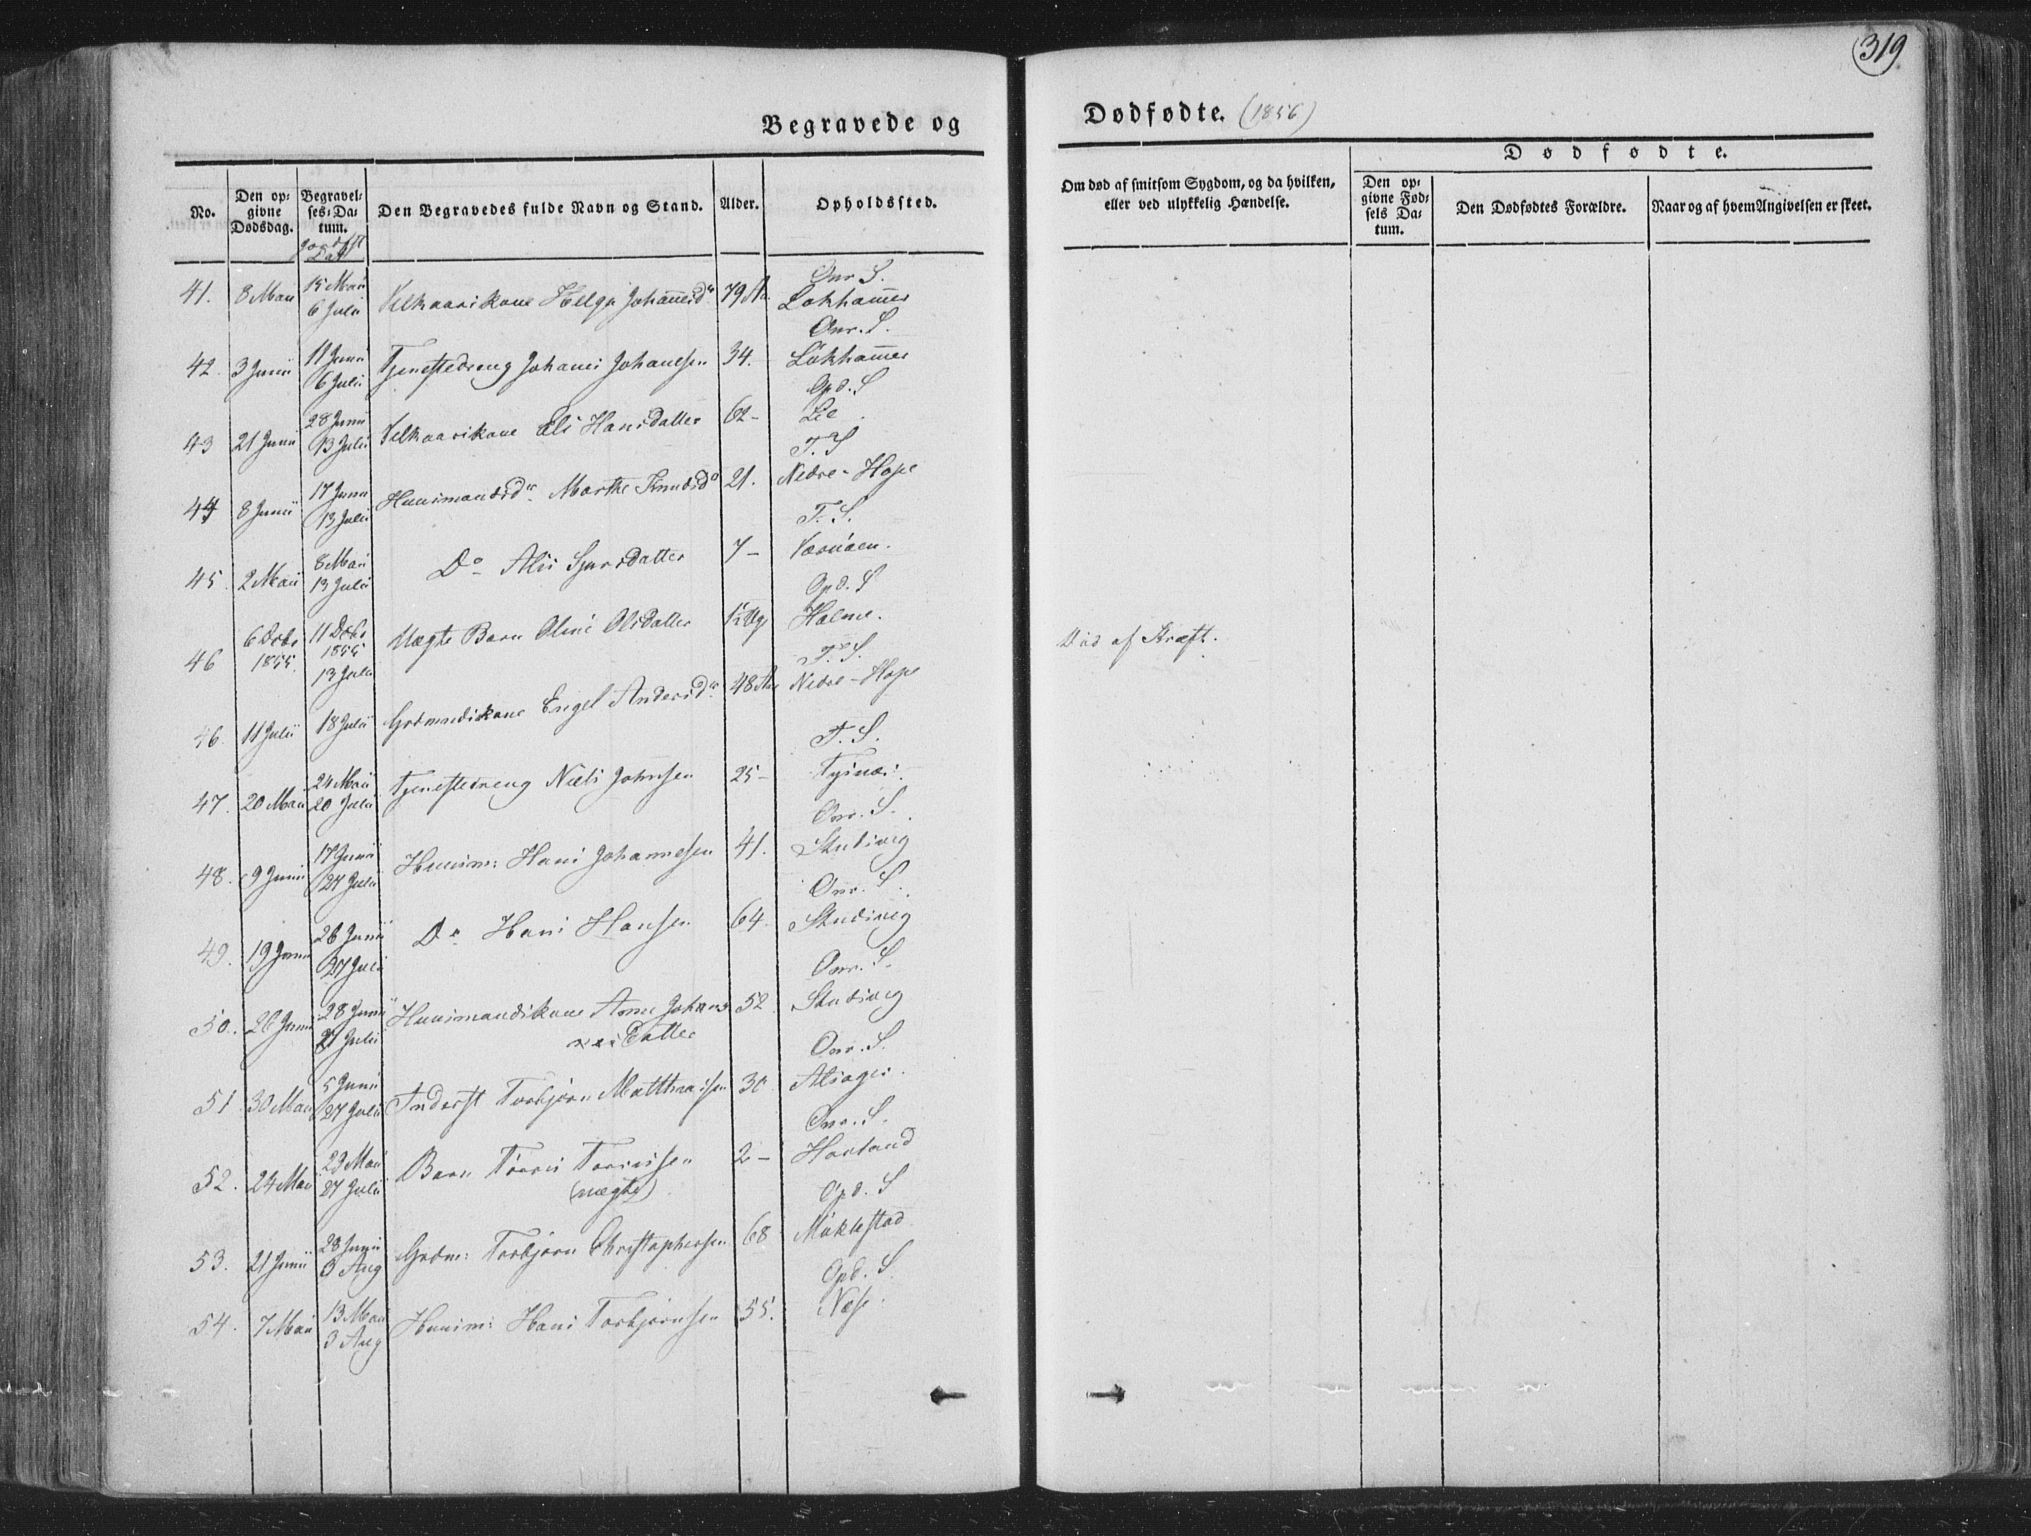 319
Begravede og
Dødfødte. (1856)
No.
Den opgivne Dødsdag.
Begravelses-Datum.
Den Begravedes fulde Navn og Stand.
Alder.
Opholdssted.
Om død af smitsom Sygdom, og da hvilken, eller ved ulykkelig Hændelse.
Dødfødte.
Den opgivne Fødsels Datum.
Den Dødfødtes Forældre.
Naar og af hvem Angivelsen er skeet.
Onr. S.
41. 8 Maii 15 Maii 6 Julii Velkaarskone Helga Johannesdr 79 Aar Løkhammer
Onr. S.
42. 3 Junii 11 Junii 6 Julii Tjenestedreng Johanes Johanesen 34. Løkhammer
Opd. S
43 21 Junii 28 Junii 13 Julii Velkaarskone Eli Hansdatter 62- Lie
T. S
44 8 Junii 17 Junii 13 Julii Huusmandsdr Marthe Knudsdr 21. Nedre-Hope
T. S.
45. 2 Maii 8 Maii 13 Julii Do Alis Sjursdatter 7-
Opd. S
46 6 Decbr 1855 11 Decbr 1855 13 Julii Uægte Barn Oline Olsdatter Holme. Død af Kræft.
T. S.
46. 11 Julii 18 Julii Grdmandskone Engel Andersdr 48 Aar Nedre-Hope
T. S.
47. 20 Maii 24 Maii 20 Julii Tjenestedreng Niels Johnsen 25- Tysnæs.
Onr. S.
48. 9 Junii 17 Junii 27 Julii Huusm: Hans Johannesen 41. Studivig
Onr. S.
49. 19 Junii 26 Junii 27 Julii Do Hans Hansen 64. Studivig
Onr. S.
50. 26 Junii 28 Junii 27 Julii Huusmandskone Anne Johannesdatter 52 Studivig
Onr. S.
51 30 Maii 5 Junii 27 Julii Inderst Torbjørn Matthiassen 30 Alsager.
Onr. S.
52. 24 Maii 29 Maii 27 Julii Barn Tørris Tørrissen (uægte) 2- Hovland
Opd. S
53. 21 Junii 28 Junii 3 Aug Grdm: Torbjørn Christophersen 68 Møklestad
Opd. S.
54. 7 Maii 13 Maii 3 Aug Huusm: Hans Torbjørnsen 55. Næse